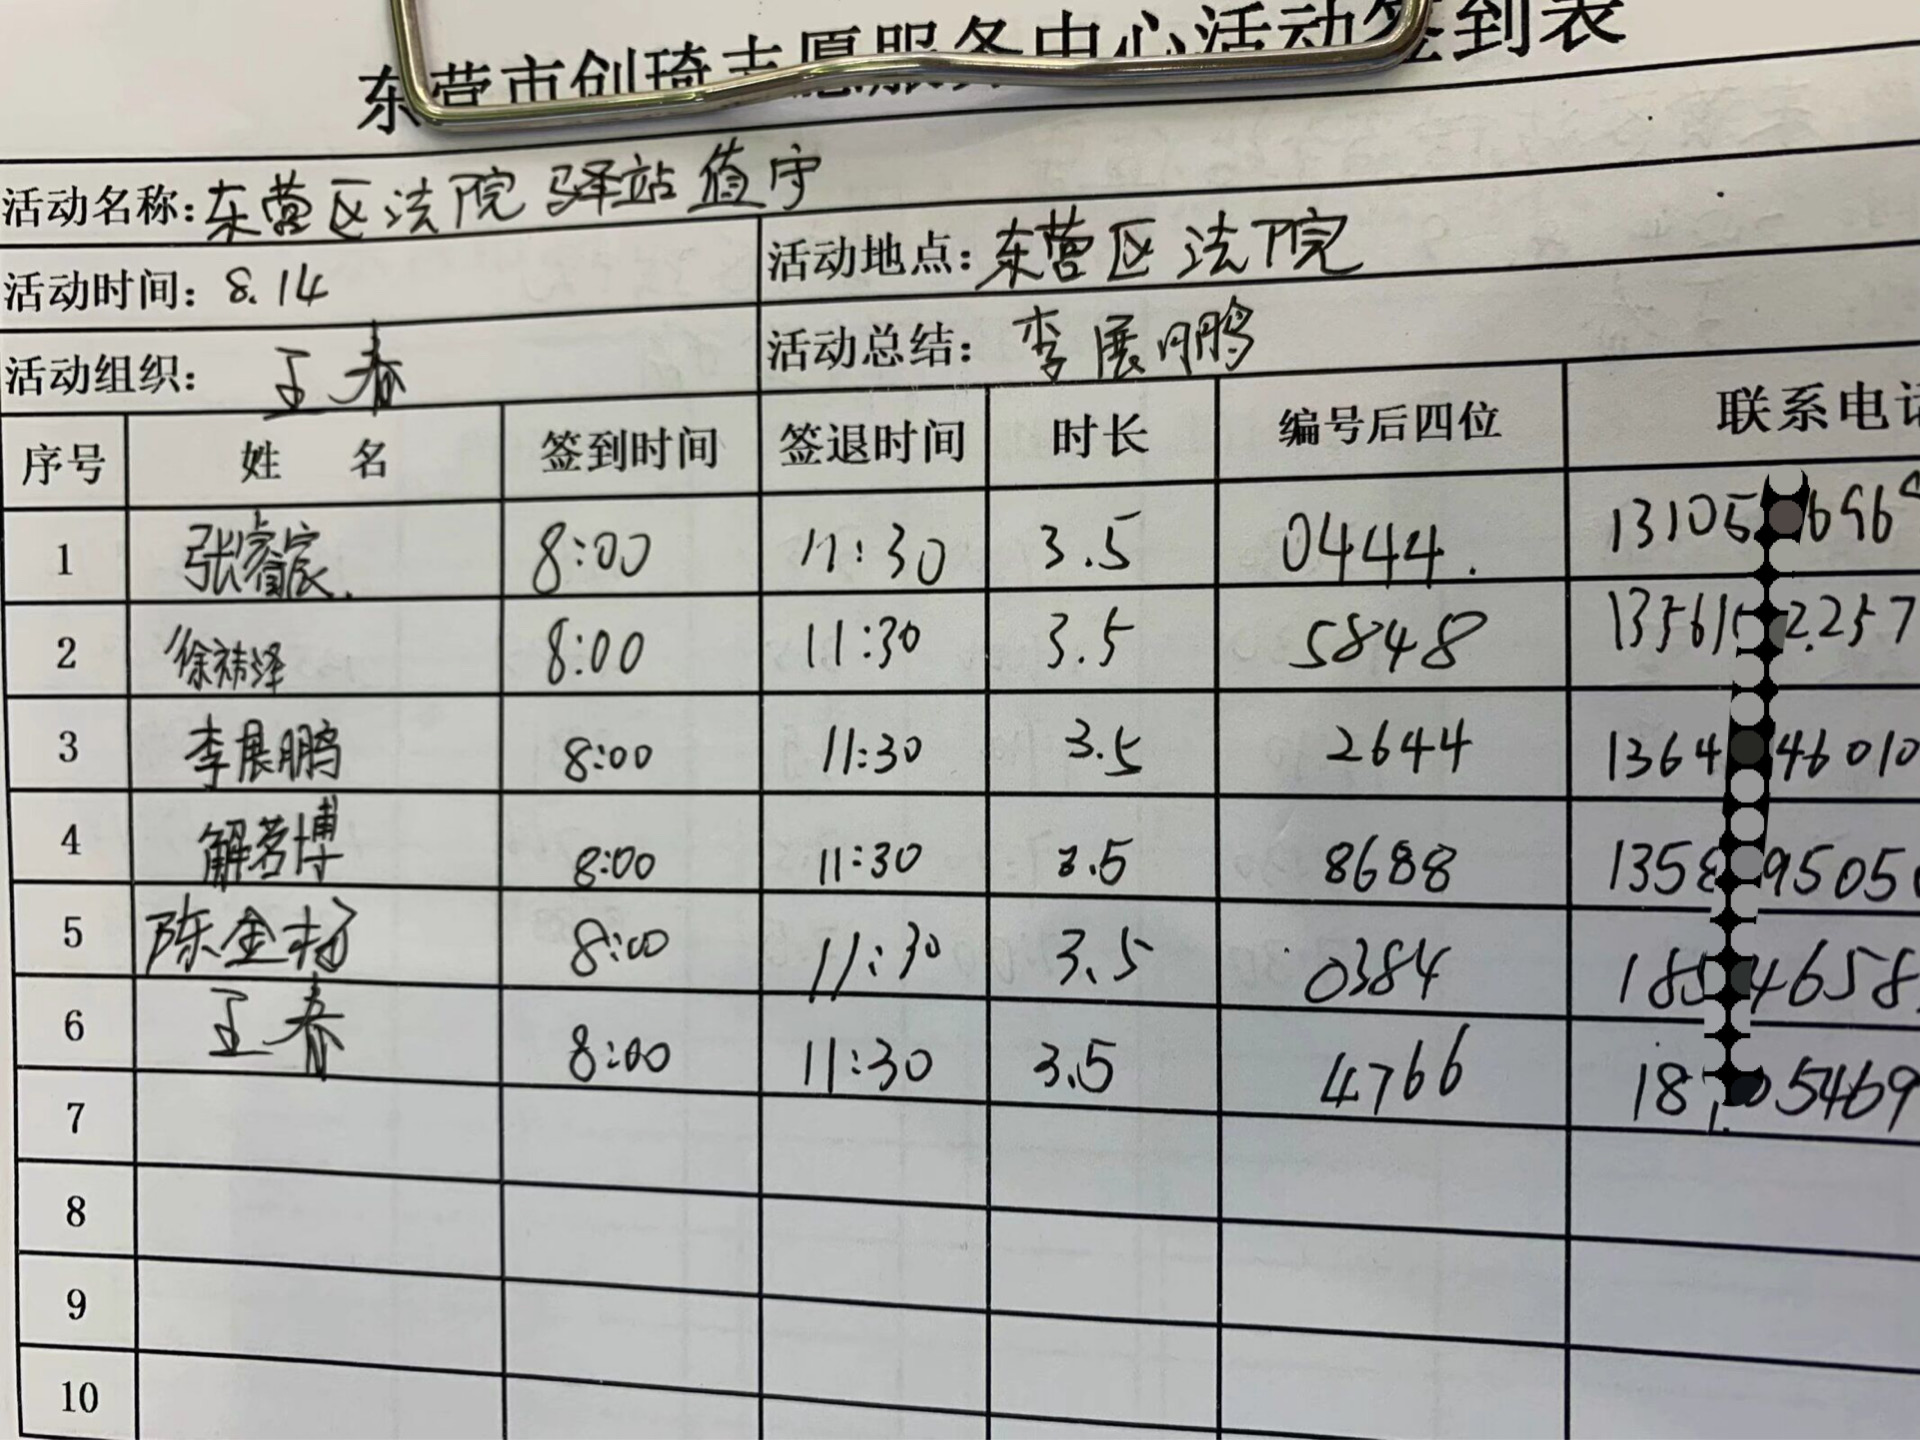 东营市创琦志愿服务中心活动签到表
活动名称:东营区法院驿站值守
活动时间:8.14 活动地点:东营区法院
活动组织: 王春 活动总结:李展鹏
序号 姓 名 签到时间 签退时间 时长 编号后四位 联系电
1 张睿宸. 8:00 11:30 3.5 0444. 13105 696
2 徐祎泽 8:00 11:30 3.5 5848 13561 2257
3 李展鹏 8:00 11:30 3.5 2644 1364 46010
4 解茗博 8:00 11:30 3.5 8688 1358 9505
5 陈金杨 8:00 11:30 3.5 0384 185 4658
6 王春 8:00 11:30 3.5 4766 18 05469
7
8
9
10